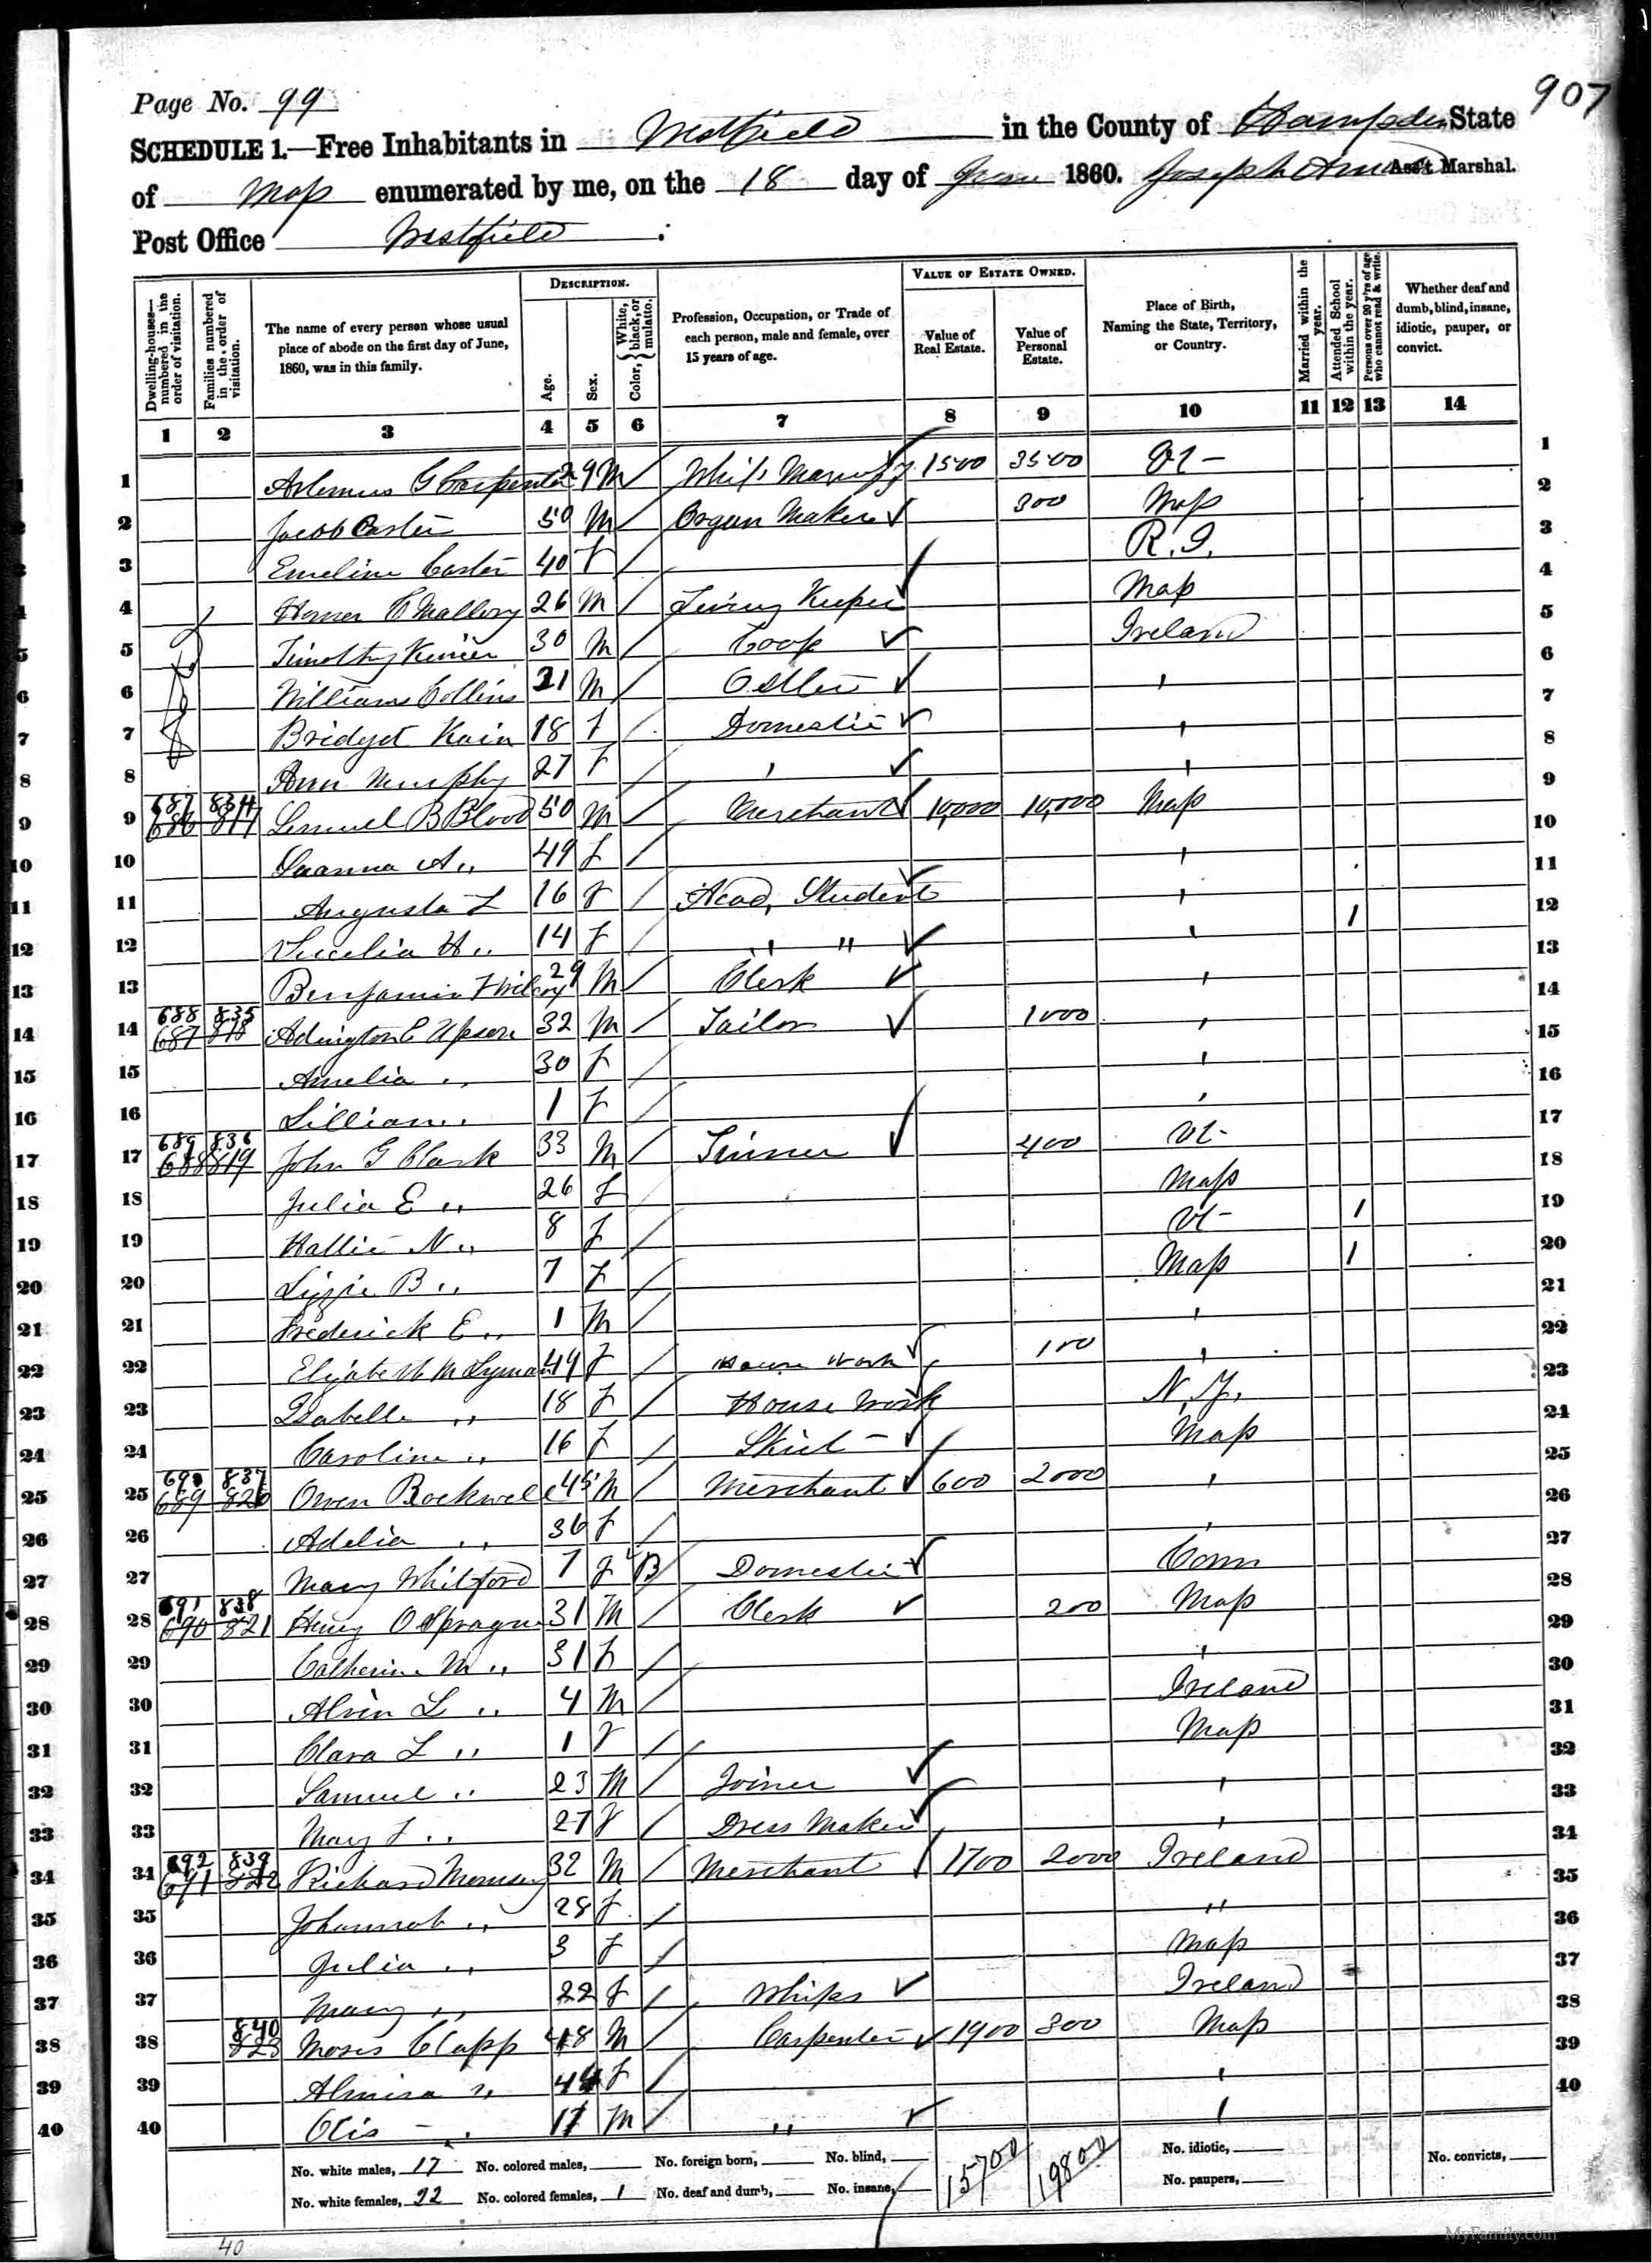 907
Page No. 99
SCHEDULE 1.—Free Inhabitants in Westfield in the County of Hampden State
of Mass enumerated by me, on the 18 day of June 1860. Joseph Ass't Marshal.
Post Office Westfield.
Dwelling-houses—numbered in the order of visitation.
Families numbered in the order of visitation.
The name of every person whose usual place of abode on the first day of June, 1860, was in this family.
DESCRIPTION.
Age.
Sex.
Color, White, black, or mulatto.
Profession, Occupation, or Trade of each person, male and female, over 15 years of age.
VALUE OF ESTATE OWNED.
Value of Real Estate.
Value of Personal Estate.
Place of Birth, Naming the State, Territory, or Country.
Married within the year.
Attended School within the year.
Persons over 20 y'rs of age who cannot read & write.
Whether deaf and dumb, blind, insane, idiotic, pauper, or convict.
1 2 3 4 5 6 7 8 9 10 11 12 13 14
1 Artemus G Carpenter 29 M / Whip Manufy 1500 3500 Vt - 1
2 Jacob Carter 50 M / Organ Maker 300 Mass 2
3 Emeline Carter 40 f / R.I. 3
4 Homer C Mallory 26 M / Livery Keeper Mass 4
5 Timothy 30 M / Coop Ireland 5
6 William Collins 21 M / Ostler " 6
7 Bridget Kain 18 f / Domestic " 7
8 Ann Murphy 27 f / " " 8
9 687 834 686 817 Lemuel B Blood 50 M / Merchant 10,000 10,000 Mass 9
10 A " 49 f / " 10
11 Augusta L 16 f / Acad, Student " 11
12 H " 14 f " " " 1 12
13 Benjamin F Wilcox 29 M / Clerk " 13
14 688 835 687 818 Adington E Upson 32 M / Tailor 1000 " 14
15 Amelia " 30 f / " 15
16 Lillian " 1 f / " 16
17 689 836 688 819 John G Clark 33 M / Tinner 400 Vt - 17
18 Julia E " 26 f Mass 18
19 Hattie N " 8 f Vt - 1 19
20 Lizzie B " 7 f / Mass 1 20
21 Frederick E " 1 M " 21
22 Elizabeth M Lyman 49 f / House Work 100 " 22
23 Isabella " 18 f / House Work N.Y. 23
24 Caroline " 16 f / Skirt - Mass 24
25 690 837 689 820 Owen Rockwell 45 M / Merchant 600 2000 " 25
26 Adelia " 36 f / " 26
27 Mary Whitford 7 f B / Domestic Conn 27
28 691 838 690 821 Henry O Sprague 31 M / Clerk 200 Mass 28
29 Catherine M " 31 f / " 29
30 Alvin L " 4 M / Ireland 30
31 Clara L " 1 f / Mass 31
32 Samuel " 23 M / Joiner " 32
33 Mary F " 27 f / Dress Maker " 33
34 692 839 691 822 Richard 32 M / Merchant 1700 2000 Ireland 34
35 Johannah " 28 f / " 35
36 Julia " 3 f / Mass 36
37 Mary " 22 f / Whips Ireland 37
38 840 823 Moses Clapp 48 M / Carpenter 1900 300 Mass 38
39 Almira " 44 f / " 39
40 Otis - " 17 M / " " 40
No. white males, 17 No. colored males, No. foreign born, No. blind, 15700 19800 No. idiotic, No. convicts,
No. white females, 22 No. colored females, 1 No. deaf and dumb, No. insane, No. paupers,
40
MyFamily.com